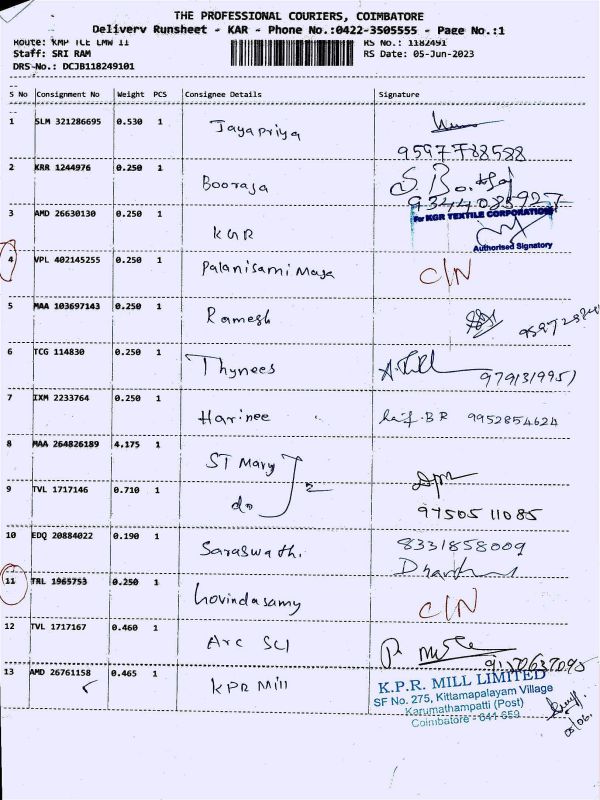 THE PROFESSIONAL COURIERS, COIMBATORE
Delivery Runsheet - KAR - Phone No.:0422-3505555 - Page No.:1
Route: KMP TCE LMW II RS No.: 1182491
Staff: SRI RAM RS Date: 05-Jun-2023
DRS-No.: DCJB118249101
S No Consignment No Weight PCS Consignee Details Signature
1 SLM 321286695 0.530 1 Jayapriya
9597788588
2 KRR 1244976 0.250 1 Booraja
9344083927
3 AMD 26630130 0.250 1 KGR
For KGR TEXTILE CORPORATION
Authorised Signatory
4 VPL 402145255 0.250 1 Palanisami C/N
5 MAA 103697143 0.250 1 Ramesh
6 TCG 114830 0.250 1 Thynees
9791319951
7 IXM 2233764 0.250 1 Harinee B R 9952854624
8 MAA 264826189 4.175 1 ST Mary
9 TVL 1717146 0.710 1 do 2
9750511085
10 EDQ 20884022 0.190 1 Saraswathi. 8331858009
11 TRL 1965753 0.250 1 Govindasamy C/N
12 TVL 1717167 0.460 1 Arc SCI
13 AMD 26761158 0.465 1 KPR Mill
K.P.R. MILL LIMITED
SF No. 275, Kittamapalayam Village
Karumathampatti (Post)
Coimbatore - 641 659
05/06.